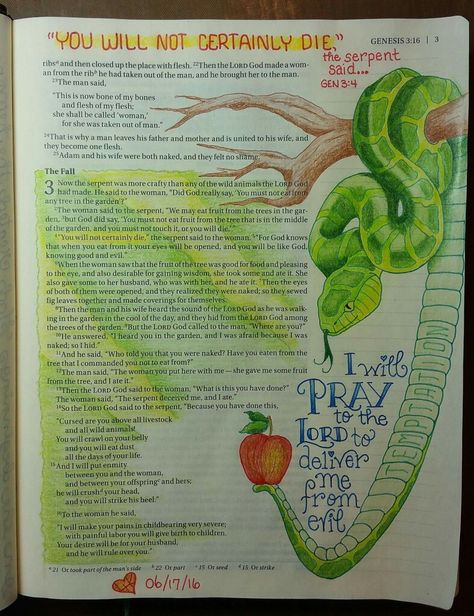 "YOU WILL NOT CERTAINLY DIE,"
GENESIS 3:16 | 3
the serpent
said...
GEN 3:4
ribsᵃ and then closed up the place with flesh. ²²Then the LORD God made a wom-
an from the ribᵇ he had taken out of the man, and he brought her to the man.
²³The man said,
"This is now bone of my bones
and flesh of my flesh;
she shall be called 'woman,'
for she was taken out of man."
²⁴That is why a man leaves his father and mother and is united to his wife, and
they become one flesh.
²⁵Adam and his wife were both naked, and they felt no shame.
The Fall
3 Now the serpent was more crafty than any of the wild animals the LORD God
had made. He said to the woman, "Did God really say, 'You must not eat from
any tree in the garden'?"
²The woman said to the serpent, "We may eat fruit from the trees in the gar-
den, ³but God did say, 'You must not eat fruit from the tree that is in the middle
of the garden, and you must not touch it, or you will die.'"
⁴"You will not certainly die," the serpent said to the woman. ⁵"For God knows
that when you eat from it your eyes will be opened, and you will be like God,
knowing good and evil."
⁶When the woman saw that the fruit of the tree was good for food and pleasing
to the eye, and also desirable for gaining wisdom, she took some and ate it. She
also gave some to her husband, who was with her, and he ate it. ⁷Then the eyes
of both of them were opened, and they realized they were naked; so they sewed
fig leaves together and made coverings for themselves.
⁸Then the man and his wife heard the sound of the LORD God as he was walk-
ing in the garden in the cool of the day, and they hid from the LORD God among
the trees of the garden. ⁹But the LORD God called to the man, "Where are you?"
¹⁰He answered, "I heard you in the garden, and I was afraid because I was
naked; so I hid."
¹¹And he said, "Who told you that you were naked? Have you eaten from the
tree that I commanded you not to eat from?"
¹²The man said, "The woman you put here with me — she gave me some fruit
from the tree, and I ate it."
¹³Then the LORD God said to the woman, "What is this you have done?"
The woman said, "The serpent deceived me, and I ate."
¹⁴So the LORD God said to the serpent, "Because you have done this,
"Cursed are you above all livestock
and all wild animals!
You will crawl on your belly
and you will eat dust
all the days of your life.
¹⁵And I will put enmity
between you and the woman,
and between your offspringᶜ and hers;
he will crushᵈ your head,
and you will strike his heel."
¹⁶To the woman he said,
"I will make your pains in childbearing very severe;
with painful labor you will give birth to children.
Your desire will be for your husband,
and he will rule over you."
I will
PRAY
to the
LORD to
deliver
me
from
evil
TEMPTATION
ᵃ 21 Or took part of the man's side ᵇ 22 Or part ᶜ 15 Or seed ᵈ 15 Or strike
06/17/16